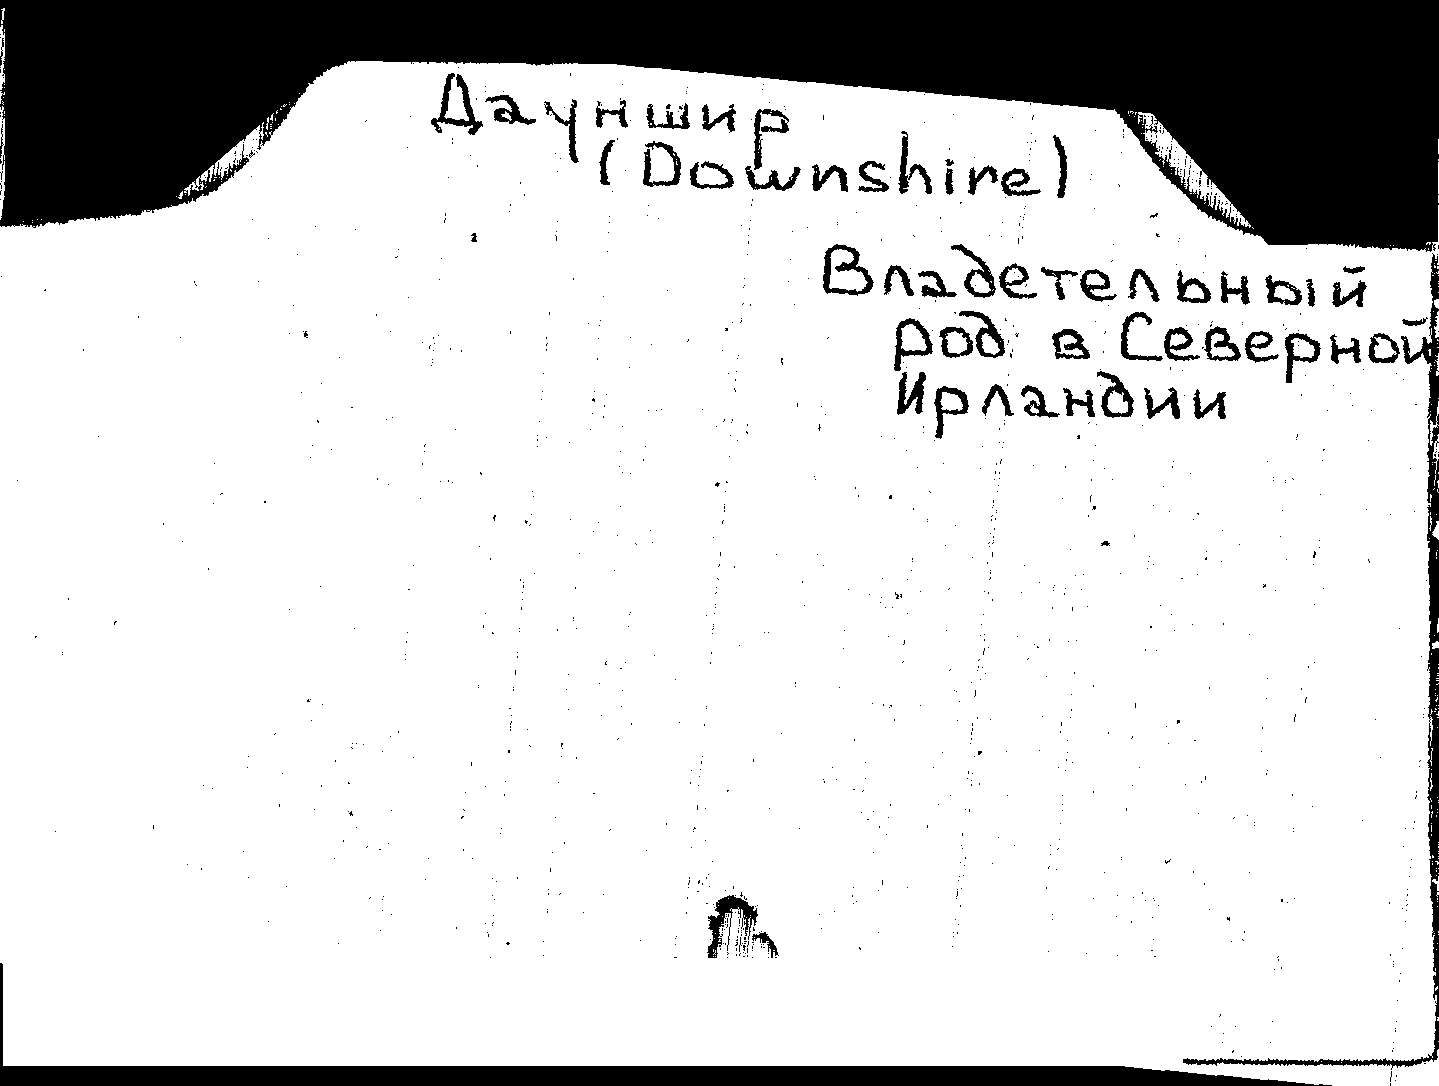 Дауншир
(Downshire)
Владетельный
род в Северной
Ирландии